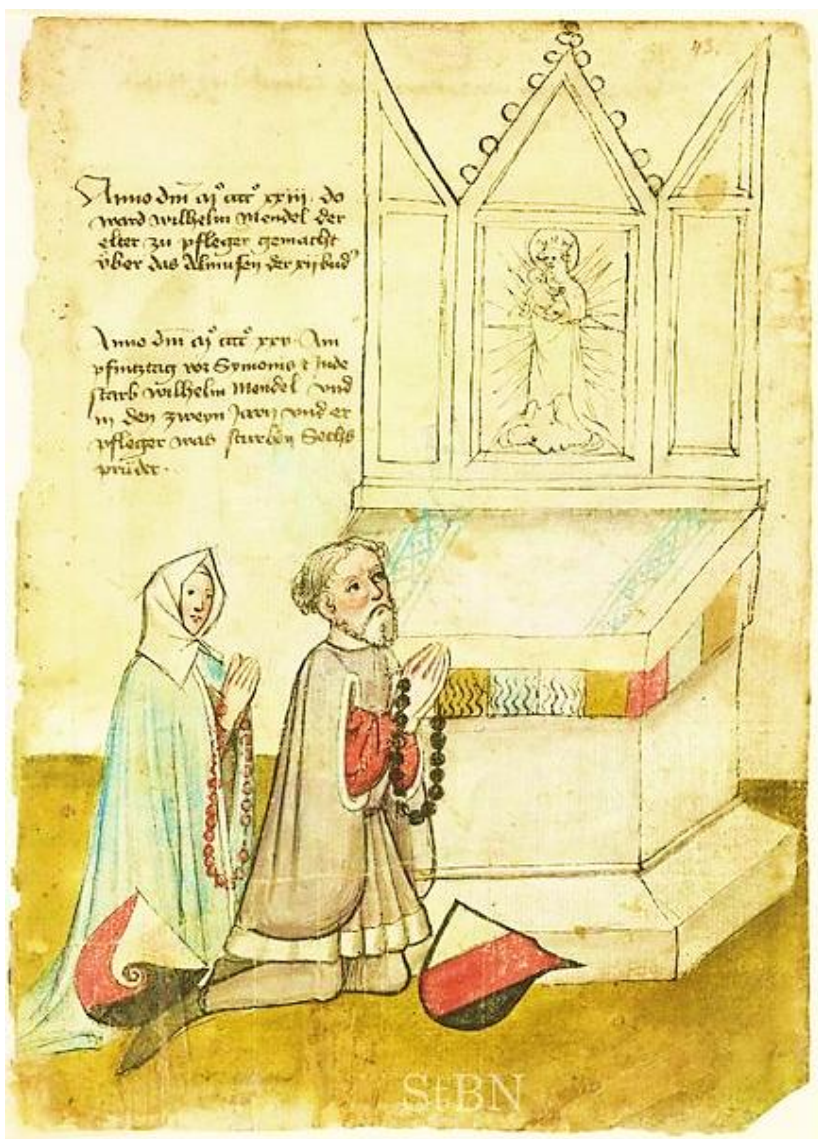 43.
Anno dm̄ mͦ ccccͦ xxiii. do
ward wilhelm Mendel der
elter zu pfleger gemacht
über das Almusen der xij brud
Anno dm̄ mͦ ccccͦ xxv. Am
pfintztag vor Symonis & Jude
starb wilhelm Mendel vnd
in den zweyn Jarn vnd er
pfleger was sturben Sechs
pruder.
StBN